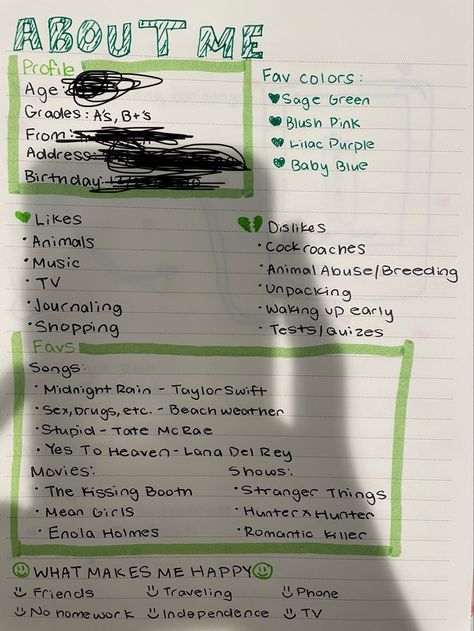 ABOUT ME
Profile
Age:
Grades: A's, B+'s
From:
Address:
Birthday:
Fav colors:
Sage Green
Blush Pink
Lilac Purple
Baby Blue
Likes
• Animals
• Music
• TV
• Journaling
• Shopping
Dislikes
• Cockroaches
• Animal Abuse/Breeding
• Unpacking
• Waking up early
• Tests/Quizes
Favs
Songs:
• Midnight Rain - Taylor Swift
• Sex, Drugs, etc. - Beach weather
• Stupid - Tate McRae
• Yes To Heaven - Lana Del Rey
Movies:
• The Kissing Booth
• Mean Girls
• Enola Holmes
Shows:
• Stranger Things
• Hunter x Hunter
• Romantic Killer
WHAT MAKES ME HAPPY
Friends
Traveling
Phone
No homework
Independence
TV